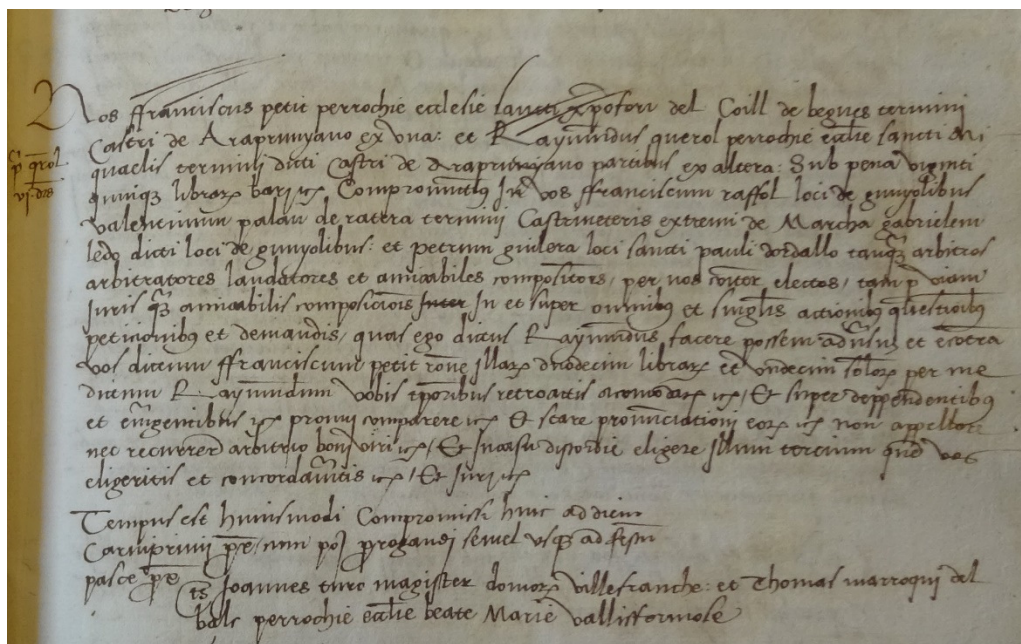 Nos ffranciscus petit perrochie ecclesie sancti xpofori del Coill de begues termini
Castri de Araprunyano ex vna: et Raymundus querol perrochie ecclie sancti Mi
quaelis termini dicti Castri de Araprunyano partibus ex altera: Sub pena viginti
quinqz librarz Compromittimus In vos ffranciscum raffol loci de gunyolibus
valentinum palau de ratera termini Castri de Marcha gabrielem
ledo dicti loci de gunyolibus: et petrum giulera loci sancti pauli dordallo tanqz arbitros
arbitratores laudatores et amicabiles compositores, per nos electos, tam p viam
Juris qz amicabilis composicionis In et super omnibus et singlis actionibus questionibus
peticionibus et demandis, quas ego dictus Raymundus facere possem et econtra
vos dictum ffranciscum petit rone illarz duodecim librarz et vndecim solorz per me
dictum Raymundum vobis temporibus retroactis, Et super deppendentibus
et emergentibus comparere Et stare pronunciationi eorz non
nec arbitrio boni viri, Et Incasu discordie eligere Illum tercium quem vos
eligeritis et Et Juri
Tempus est huiusmodi Compromissi hinc ad diem
Carniprivii cum semel vsqz ad festum
pasce
Joannes turo magister domorz villefranche: et Thomas marroqui del
balc perrochie ecclie beate Marie vallisformose
p qrol